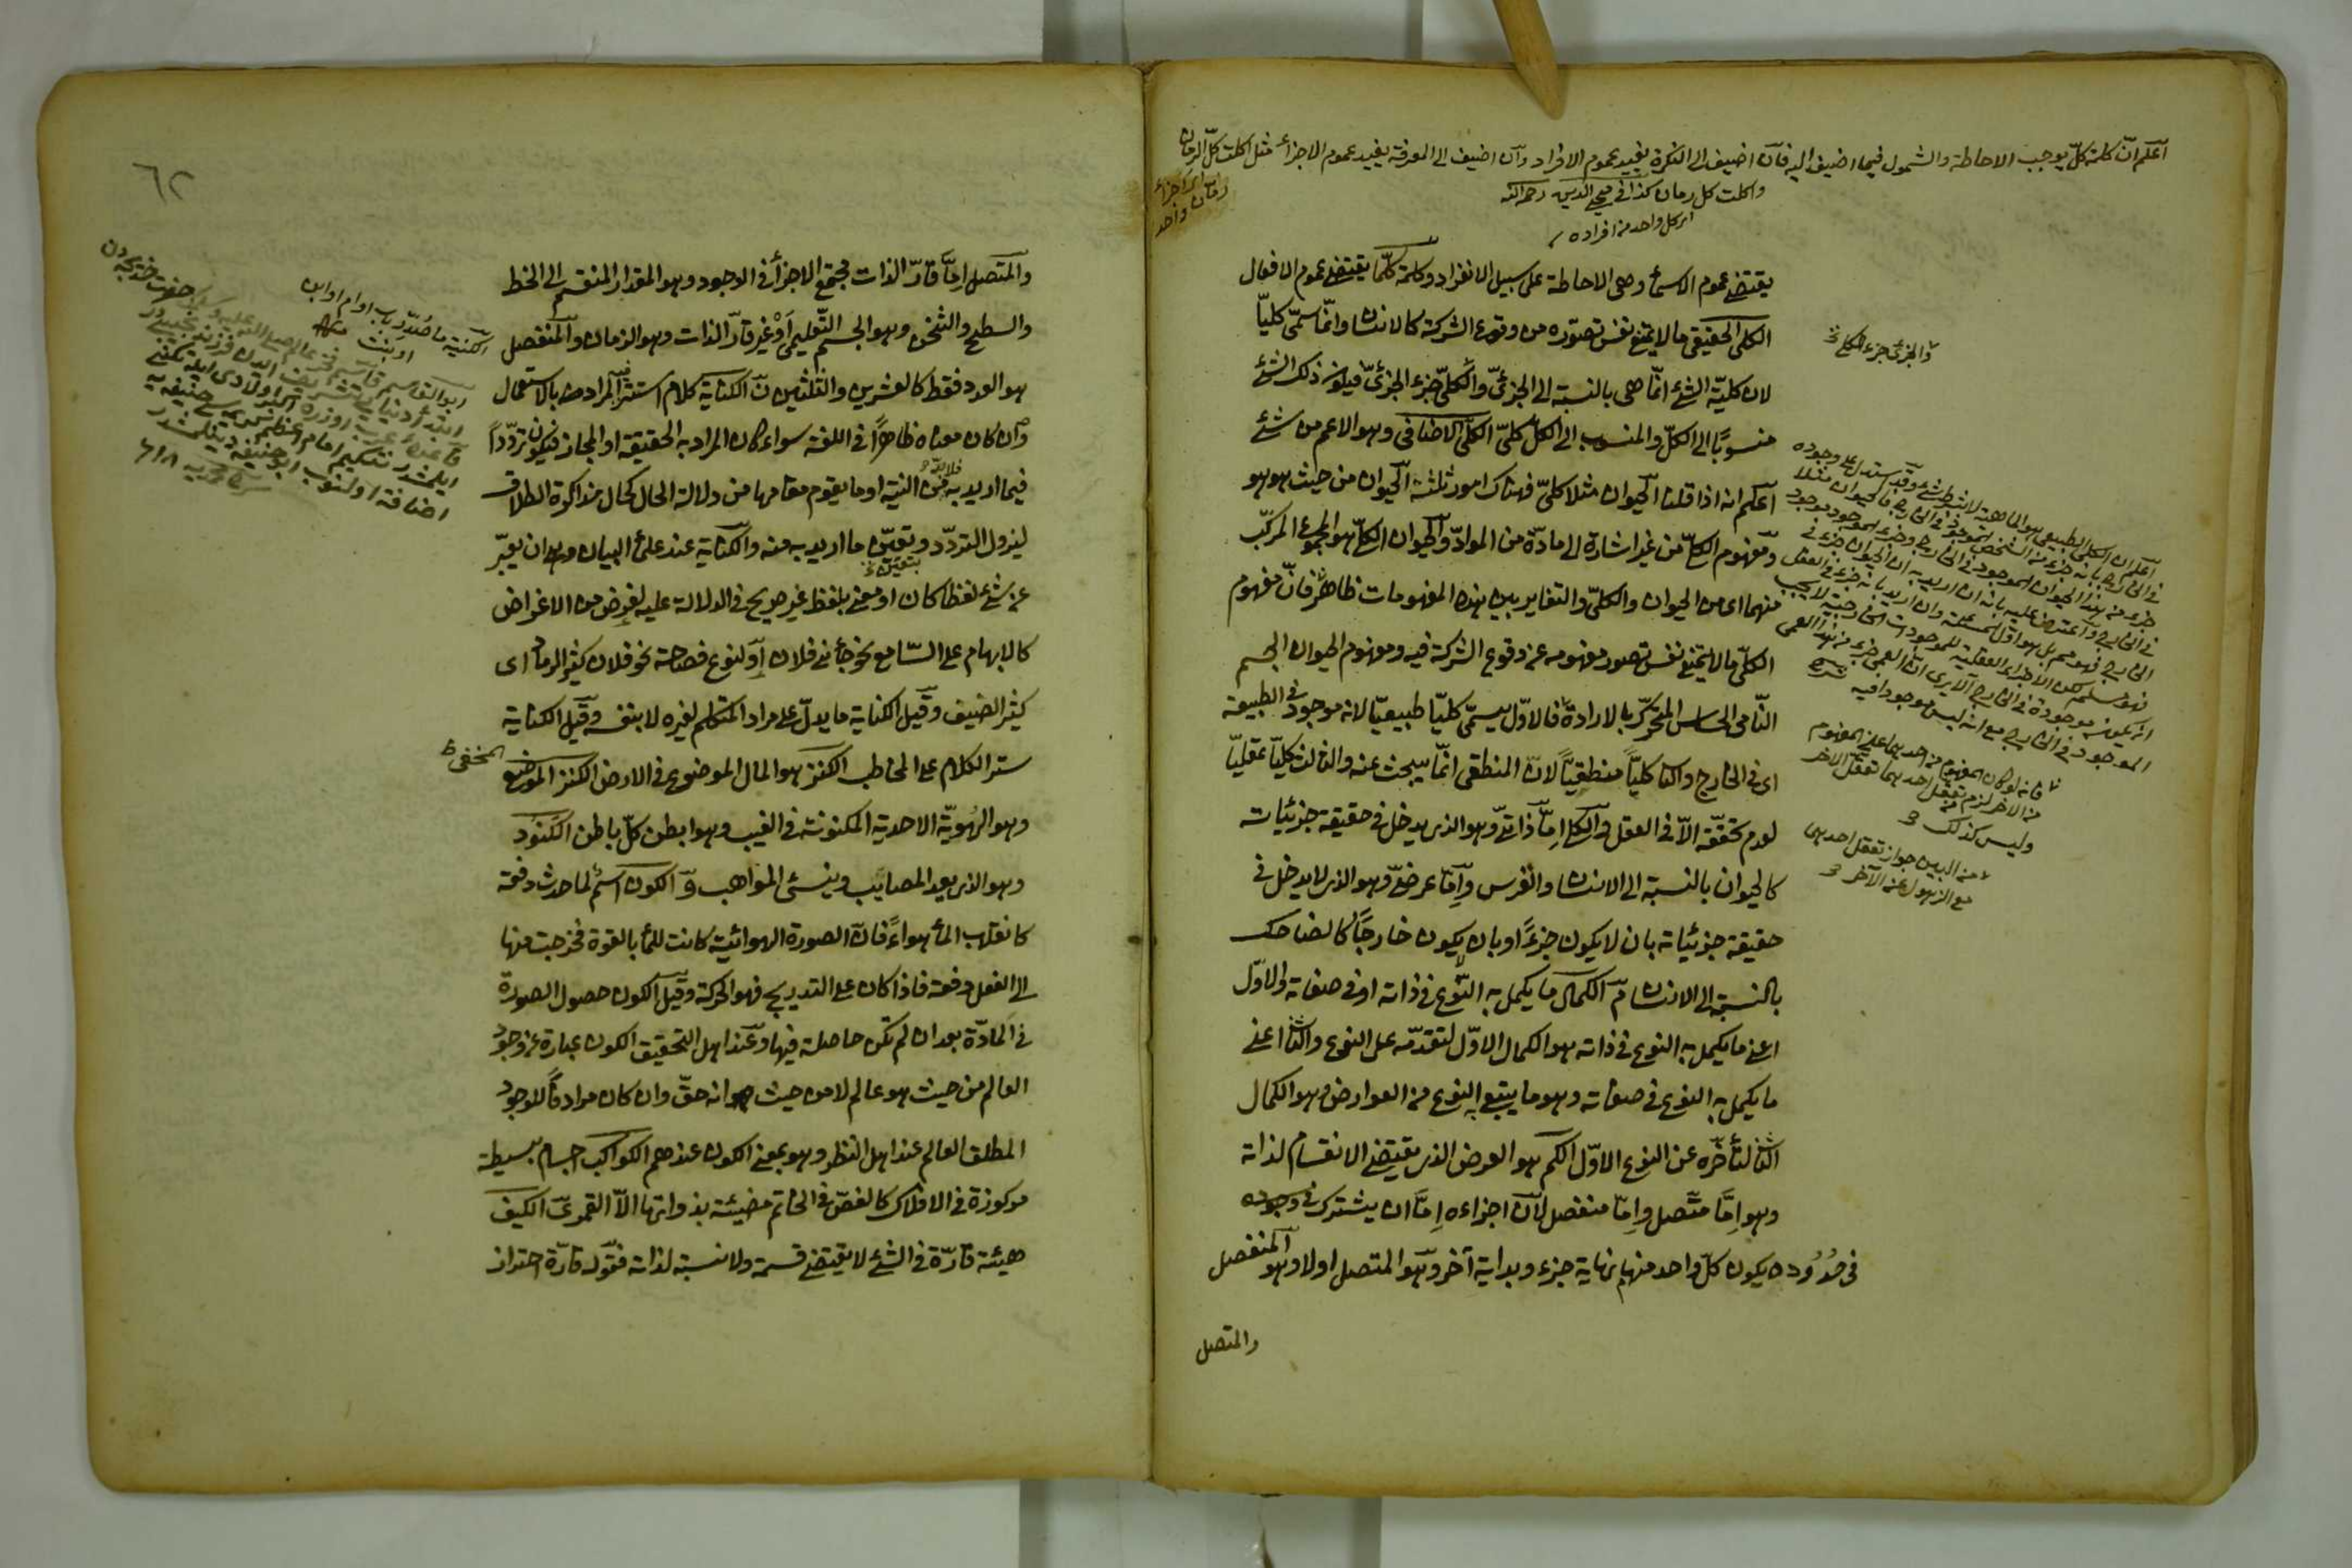 اعلم ان كلمة كل يوجب الاحاطة والشمول فيما اضيف اليه فان اضيف الى النكرة يفيد عموم الافراد وان اضيف الى المعرفة يفيد عموم الاجزاء مثل اكلت كل الرمان
واكلت كل رمان كذا فى محيى الدين رحمه الله
اى كل واحد من افراده
يقتضى عموم الاسماء وهى الاحاطة على سبيل الانفراد وكلمة كلّما يقتضى عموم الافعال
الكلى الحقيقى ما لا يمنع نفس تصوّره من وقوع الشركة كالانسان وانّما سمّى كليّا
لان كليّة الشئ انّما هى بالنسبة الى الجزئىّ والكلىّ جزء الجزئىّ فيكون ذلك الشئ
منسوبًا الى الكلّ والمنسوب الى الكلّ كلىّ الكلّى الاضافى وهو الاعم من شئ
اعلم انه اذا قلنا الحيوان مثلا كلىّ فهناك امور ثلثة الحيوان من حيث هو هو
ومفهوم الكلىّ من غير اشارة الى مادّة من الموادّ والحيوان الكلىّ هو المجموع المركّب
منهما اى من الحيوان والكلىّ والتغاير بين هذه المفهومات ظاهر فانّ مفهوم
الكلىّ ما لا يمنع نفس تصور مفهومه عن وقوع الشركة فيه ومفهوم الحيوان الجسم
النّامى الحساس المتحرّك بالارادة فالاوّل يسمّى كليّا طبيعيّا لانه موجود فى الطبيعة
اى فى الخارج والثانى كليّاً منطقيّاً لانّ المنطقى انّما يبحث عنه والثالث كليّا عقليّا
لعدم تحققّه الاّ فى العقل والكلى امّا ذاتىّ وهو الذى يدخل فى حقيقة جزئياته
كالحيوان بالنسبة الى الانسان والفرس وامّا عرضىّ وهو الذى لا يدخل فى
حقيقة جزئياته بان لا يكون جزءً او بان يكون خارجًا كالضاحك
بالنسبة الى الانسان الكمال ما يكمل به النّوع فى ذاته او فى صفاته والاوّل
اعنى ما يكمل به النوع فى ذاته هو الكمال الاوّل لتقدّمه على النوع والثانى اعنى
ما يكمل به النوع فى صفاته وهو ما يتبع النوع من العوارض وهو الكمال
الثانى لتأخّره عن النوع الاوّل الكم هو العرض الذى يقتضى الانقسام لذاته
وهو امّا متّصل وامّا منفصل لانّ اجزاءه امّا ان يشترك فى وجوده
فى حُدُوده يكون كلّ واحد منها نهاية جزء وبداية آخر وهو المتصل اولا وهو المنفصل
والمتصل
والجزئى جزء الكلى
فانه لو كان المفهوم من احديهما عين المفهوم
من الاخر لزم من تعقل احديهما تعقل الاخر
وليس كذلك
من البين جواز تعقل احديهما
مع الذهول عن الآخر
٦٢
والمتصل امّا قارّ الذات مجتمع الاجزاء فى الوجود وهو المقدار المنقسم الى الخط
والسطح والثخن وهو الجسم التّعليمى اَوْ غير قارّ الذات وهو الزمان والمنفصل
هو العدد فقط كالعشرين والثلثين الكناية كلام استتر المراد منه بالاستعمال
وان كان معناه ظاهرًا فى اللغة سواء كان المراد به الحقيقة او المجاز فيكون تردّداً
فيما اريد به فلابدّ من النية او ما يقوم مقامها من دلالة الحال كحال مذاكرة الطلاق
ليزول التردّد ويتعيّن ما اريد به منه والكناية عند علماء البيان وهو ان يعبّر
عن شئ لفظا كان او معنى بلفظ غير صريح فى الدلالة عليه لغرض من الاغراض
كالابهام على السّامع نحو جاءنى فلان او لنوع فصاحة نحو فلان كثير الرماد اى
كثير الضيف وقيل الكناية ما يدلّ على مراد المتكلم لغيره لا بنفسه وقيل الكناية
ستر الكلام على المخاطب الكنز هو المال الموضوع فى الارض الكنز المخفى
وهو الهُويّة الاحدية المكنونة فى الغيب وهو ابطن كلّ باطن الكَنود
وهو الذى يعد المصايب وينسى المواهب الكون اسمٌ لما حدث دفعة
كانقلاب الماء هواءً فانّ الصورة الهوائية كانت للماء بالقوة فخرجت منها
الى الفعل دفعة فاذا كان على التدريج فهو الحركة وقيل الكون حصول الصورة
فى المادّة بعد ان لم تكن حاصلة فيها وعند اهل التحقيق الكون عبارة عن وجود
العالم من حيث هو عالم لا من حيث انه حقّ وان كان مرادفًا للوجود
المطلق العام عند اهل النظر وهو بمعنى الكون عندهم الكواكب اجسام بسيطة
مركوزة فى الافلاك كالفصّ فى الخاتم مضيئة بذواتها الاّ القمر الكيف
هيئة قارّة فى الشئ لا يقتضى قسمة ولا نسبة لذاته فقوله قارّة احتراز
الكنية ما صُدّر باب او ام او ابن
او بنت